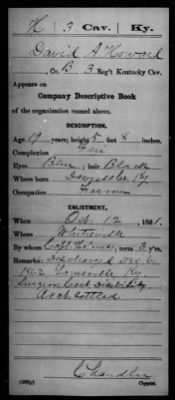 H | 3 Cav. | Ky.
David A Howard
Co. B, 3 Reg't Kentucky Cav.
Appears on
Company Descriptive Book
of the organization named above.
DESCRIPTION.
Age 19 years; 5 feet 8 inches.
Complexion Fair
Eyes Blue; hair Black
Where born Daviess Co. Ky
Occupation Farmer
ENLISTMENT.
When Oct. 12, 1861.
Where
By whom Capt. ; term 3 y'rs.
Remarks: Discharged Dec 6
1862 Louisville Ky
Surgeon Cert Disability
settled
Chandler
Copyist.